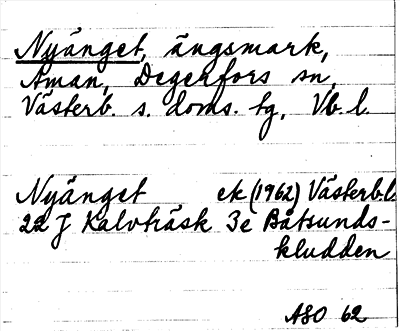 Nyänget, ängsmark,
Åman, Degerfors sn,
Västerb. s. doms. tg, Vb. l.
Nyänget ek (1962) Västerb.l.
22 J Kalvträsk 3e Båtsunds-
kludden
ASO 62